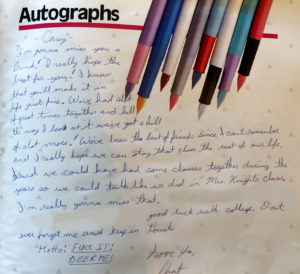 Autographs
Casey
I'm gonna miss you a
bunch! I really hope the
best for you! I know
that you'll make it in
life just fine. We've had alot
of great times together and hell
the way I look at it we've got a hell
of alot more! We've been the best of friends since I can't remember
and I really hope we can stay that close the rest of our life.
I wish we could have had some classes together during the
years so we could talk like we did in Mrs. Knights class
I'm really gonna miss that.
good luck with college Don't
ever forget me and keep in touch
Motto! FUCK IT!
BEER ME!
Love Ya,